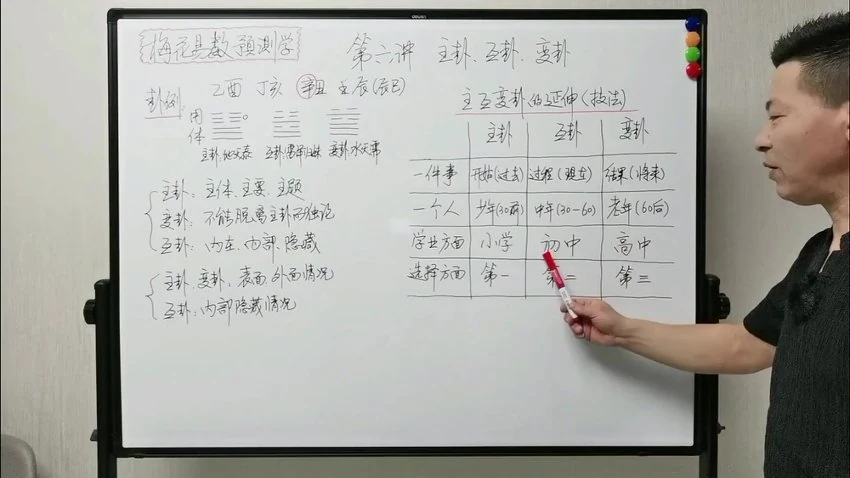 DELI
梅花易数预测学
第二讲 主卦、互卦、变卦
卦例:
乙酉 丁亥 辛丑 壬辰(辰巳)
用
体
主卦:地天泰 互卦:雷泽归妹 变卦:水天需
主卦:主体、主要、主题
变卦:不能脱离主卦而独论
互卦:内在、内部、隐藏
主卦、变卦:表面、外面情况
互卦:内部隐藏情况
主互变卦的延伸(技法)
主卦 互卦 变卦
一件事 开始(过去) 过程(现在) 结果(将来)
一个人 少年(30前) 中年(30-60) 老年(60后)
学业方面 小学 初中 高中
选择方面 第一 第二 第三